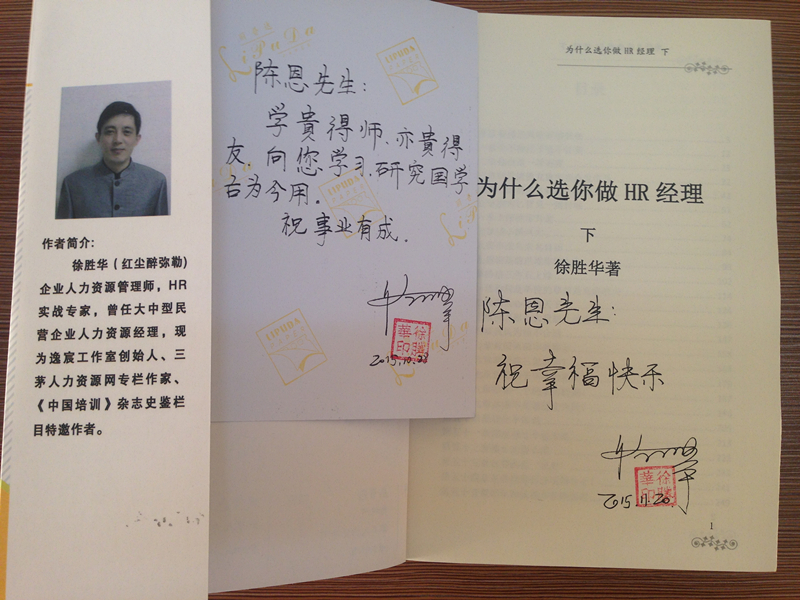 作者简介：
徐胜华（红尘醉弥勒）
企业人力资源管理师，HR
实战专家，曾任大中型民
营企业人力资源经理，现
为逸宸工作室创始人、三
茅人力资源网专栏作家、
《中国培训》杂志史鉴栏
目特邀作者。
LiPuDa
LIPUDA
陈恩先生：
学贵得师、亦貴得
友，向您学习，研究国学
古为今用。
祝事业有成。
徐勝華印
2015.10.23
LIPUDA
LIPUDA
为什么选你做 HR 经理 下
为什么选你做 HR 经理
下
徐胜华著
陈恩先生：
祝幸福快乐
徐勝華印
2015.11.20
1